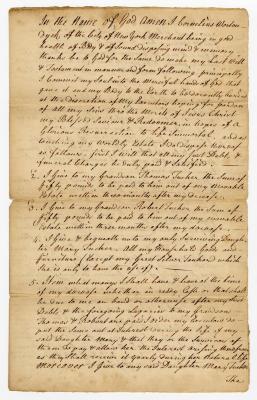 In the Name of God Amen I Cornelius Wynkoop
of the City of New York Merchant being in good
health of Body & of Sound disposing mind & memory
thanks be to God for the Same do make my last Will
& Testament in manner and form following principally
I Commit my Soul into the Merciful hands of God that
gave it and my Body to the Earth to be decently buried
at the discretion of My Executors hoping for pardon
of all my Sins thro the Merits of Jesus Christ
my Blessed Saviour & Redeemer, in hopes of a
Glorious Resurrection to life Immortal, and as
touching my Worldly Estate I do dispose thereof
as follows, first I Will that all my Just Debts, &
funeral Charges be Duly paid & Satisfied.
2. I give to my Grandson Thomas Tucker, the Sum of
fifty pounds to be paid to him out of my moveable
Estate within three months after my decease.
3. I give to my Grandson Robert Tucker the Sum of
fifty pounds to be paid to him out of my moveable
Estate within three months after my decease.
4. I give & bequeath unto my only Surviving Daugh
ter Mary Tucker All my Household Goods and
furniture (except my Great Silver Tankard which
She is only to have the use of)
5. Now what moneys I shall have & leave at the time
of my decease whether in ready Cash or that shall
be due to me on bond or otherwise after my Just
Debts & the foregoing Legacies to my Grandsons
Thomas & Robert are paid I order my Executors to
put the Same out at Interest during the life of my
said Daughter Mary & that they in the
them Pay & allow her the Interest
as they shall receive it yearly during her Natural life
moreover I Give to my said Daughter Mary Tucker
The